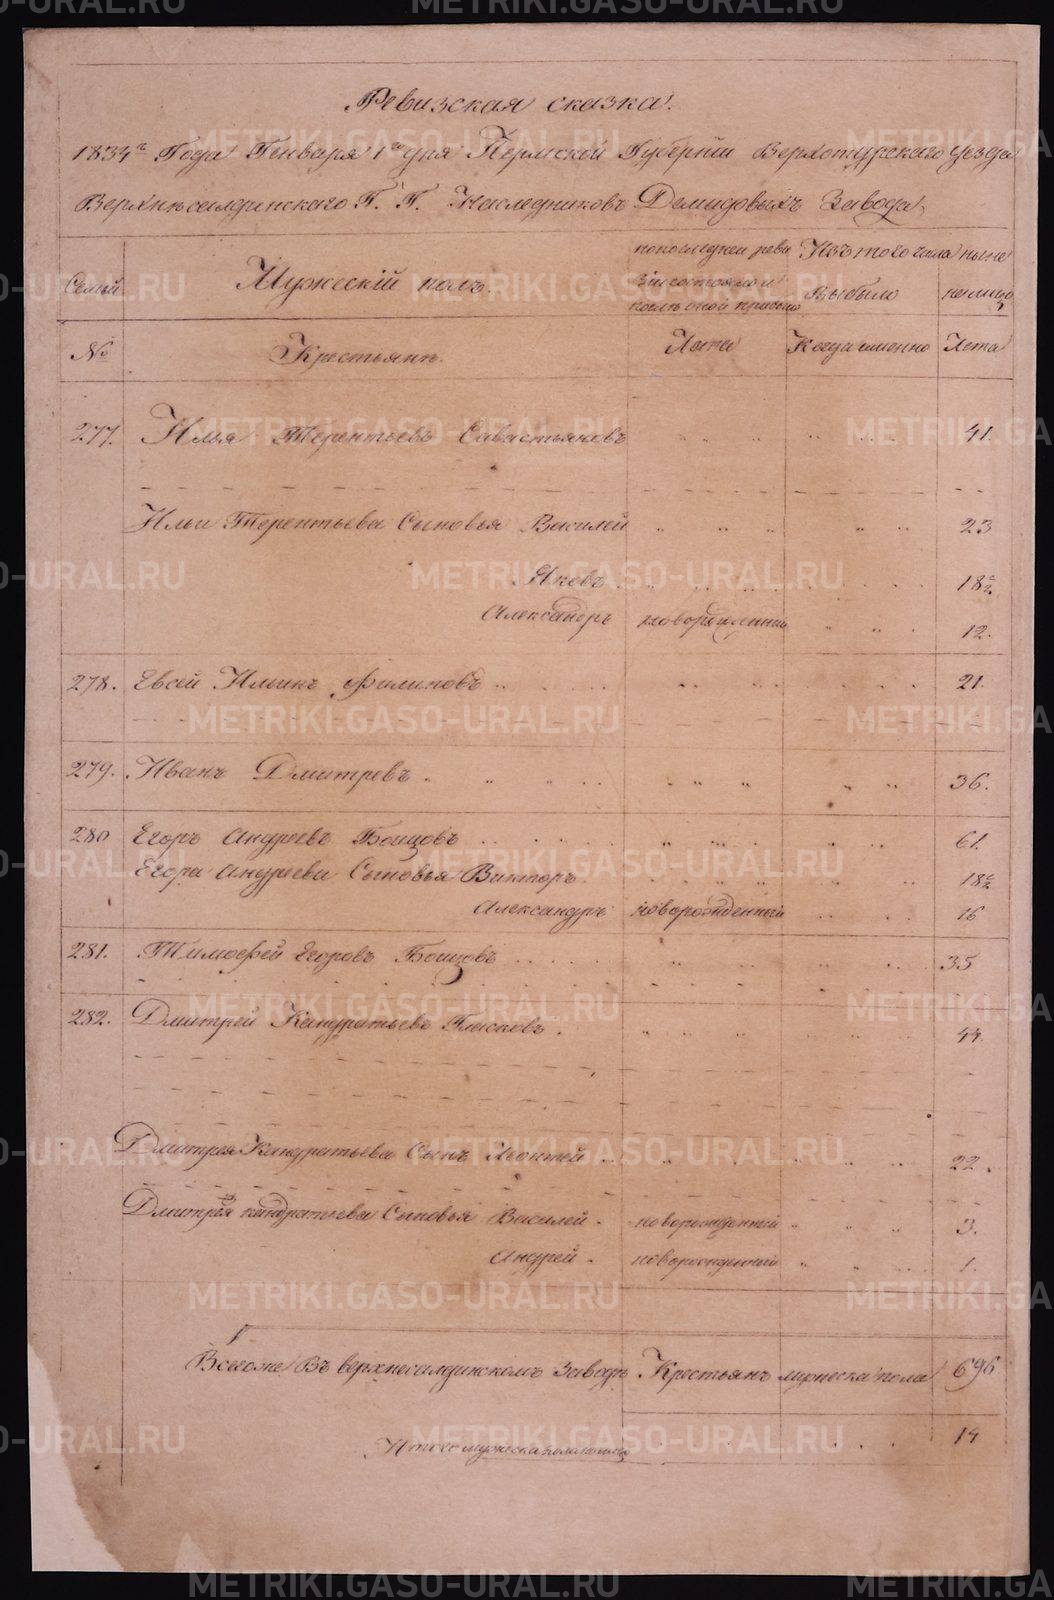 Ревизская сказка.
1834го Года Генваря 1го дня Пермской Губернии Верхотурского Уезда
Верхнесалдинского Г. Г. Наследниковъ Демидовыхъ Завода
Семьи
Мужескій полъ.
по последней реви
зіи состояло и
после оной прибыло
Изъ того числа
выбыло
ныне
налицо
№
Крестьяне.
Лета
Когда именно
Лета
277. Илья Терентьевъ Савастьяновъ 41.
Ильи Терентьева Сыновья Василей 23
Яковъ 18 1/2
Александръ новорожденный 12.
278. Евсей Ильинъ Филиповъ 21.
279. Иванъ Дмитревъ 36.
280 Егоръ Андреевъ Боицовъ 61.
Егора Андреева Сыновья Викторъ 18 1/2
Александръ новорожденный 16
281. Тимофей Егоровъ Боицовъ 35
282. Дмитрей Кандратьевъ 44.
Дмитрея Кандратьева Сынъ Леонтей 22.
Дмитрея Кандратьева Сыновья Василей новорожденный 3.
Андрей новорожденный 1.
Всего же Въ верхнесалдинскомъ Заводе Крестьянъ мужеска пола 696
Итого мужеска пола 14
METRIKI.GASO-URAL.RU